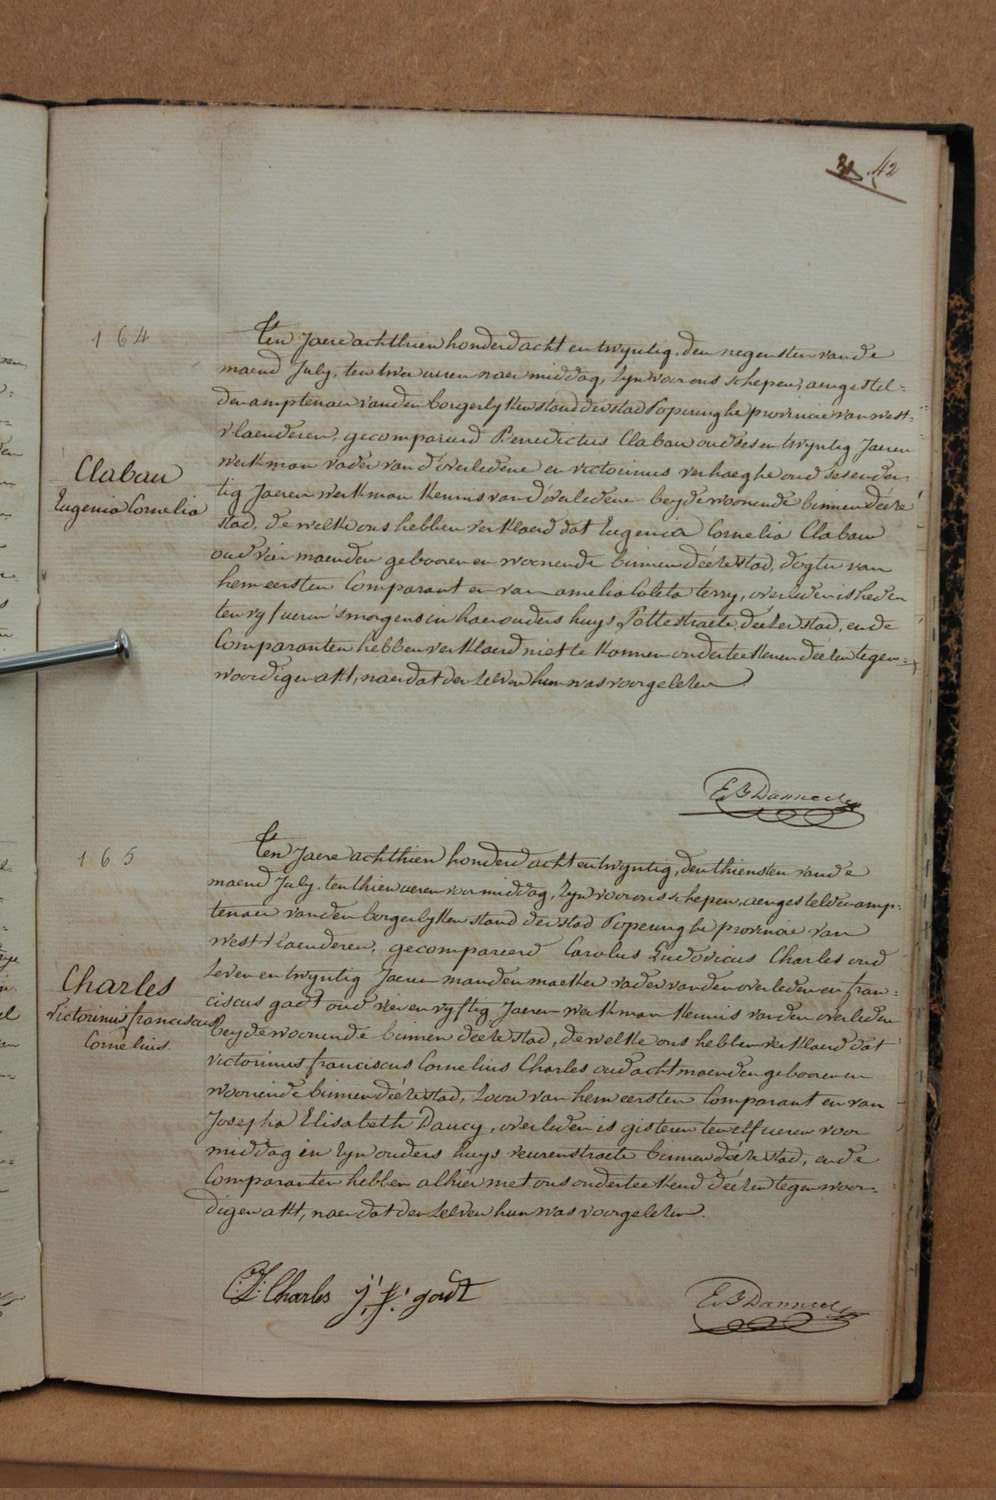 42
164
Clabau
Eugenia Cornelia
Ten Jaere achthien honderd acht en twyntig, den negensten van de
maend July, ten twee ueren naer middag, zyn voor ons schepen, aengestel-
den amptenaer van den borgerlyken stand der stad Poperinghe provincie van west-
vlaenderen, gecompareerd Benedictus Clabau oud ses en twyntig Jaeren
werkman vader van d'overledene en victorinus verhaeghe oud ses en der-
tig Jaeren werkman kennis van d'overledene beyde woonende binnen deéze
stad, de welke ons hebben verklaerd dat Eugenia Cornelia Clabau
oud vier maenden gebooren en woonende binnen deéze stad, dogter van
hem eersten Comparant en van amelia Coleta terry, overleden is heden
ten vyf ueren 's morgens in haer ouders huys, Pottestraete, deézer stad, en de
Comparanten hebben verklaerd niet te konnen onderteekenen deézen tegen-
woordigen akt, naer dat den zelven hun was voorgelezen
165
Charles
Victorinus franciscus
Cornelius
Ten Jaere achthien honderd acht en twyntig, den thiensten van de
maend July, ten thien ueren voormiddag, zyn voor ons schepen, aengestelden amp-
tenaer van den borgerlyken stand der stad Poperinghe provincie van
west-vlaenderen, gecompareerd Carolus Ludovicus Charles oud
zeven en twyntig Jaeren manden maeker vader van den overleden en fran-
ciscus gadt oud vier en vyftig Jaeren werkman kennis van den overleden
beyde woonende binnen deéze stad, de welke ons hebben verklaerd dat
victorinus franciscus Cornelius Charles oud acht maenden gebooren en
woonende binnen deéze stad, zoon van hem eersten Comparant en van
Josepha Elisabeth Daucy, overleden is gisteren ten elf ueren voor
middag in zyn ouders huys veurenstraete binnen deéze stad, en de
Comparanten hebben alhier met ons onderteekend deézen tegenwoor-
digen akt, naer dat den zelven hun was voorgelezen.
Charles